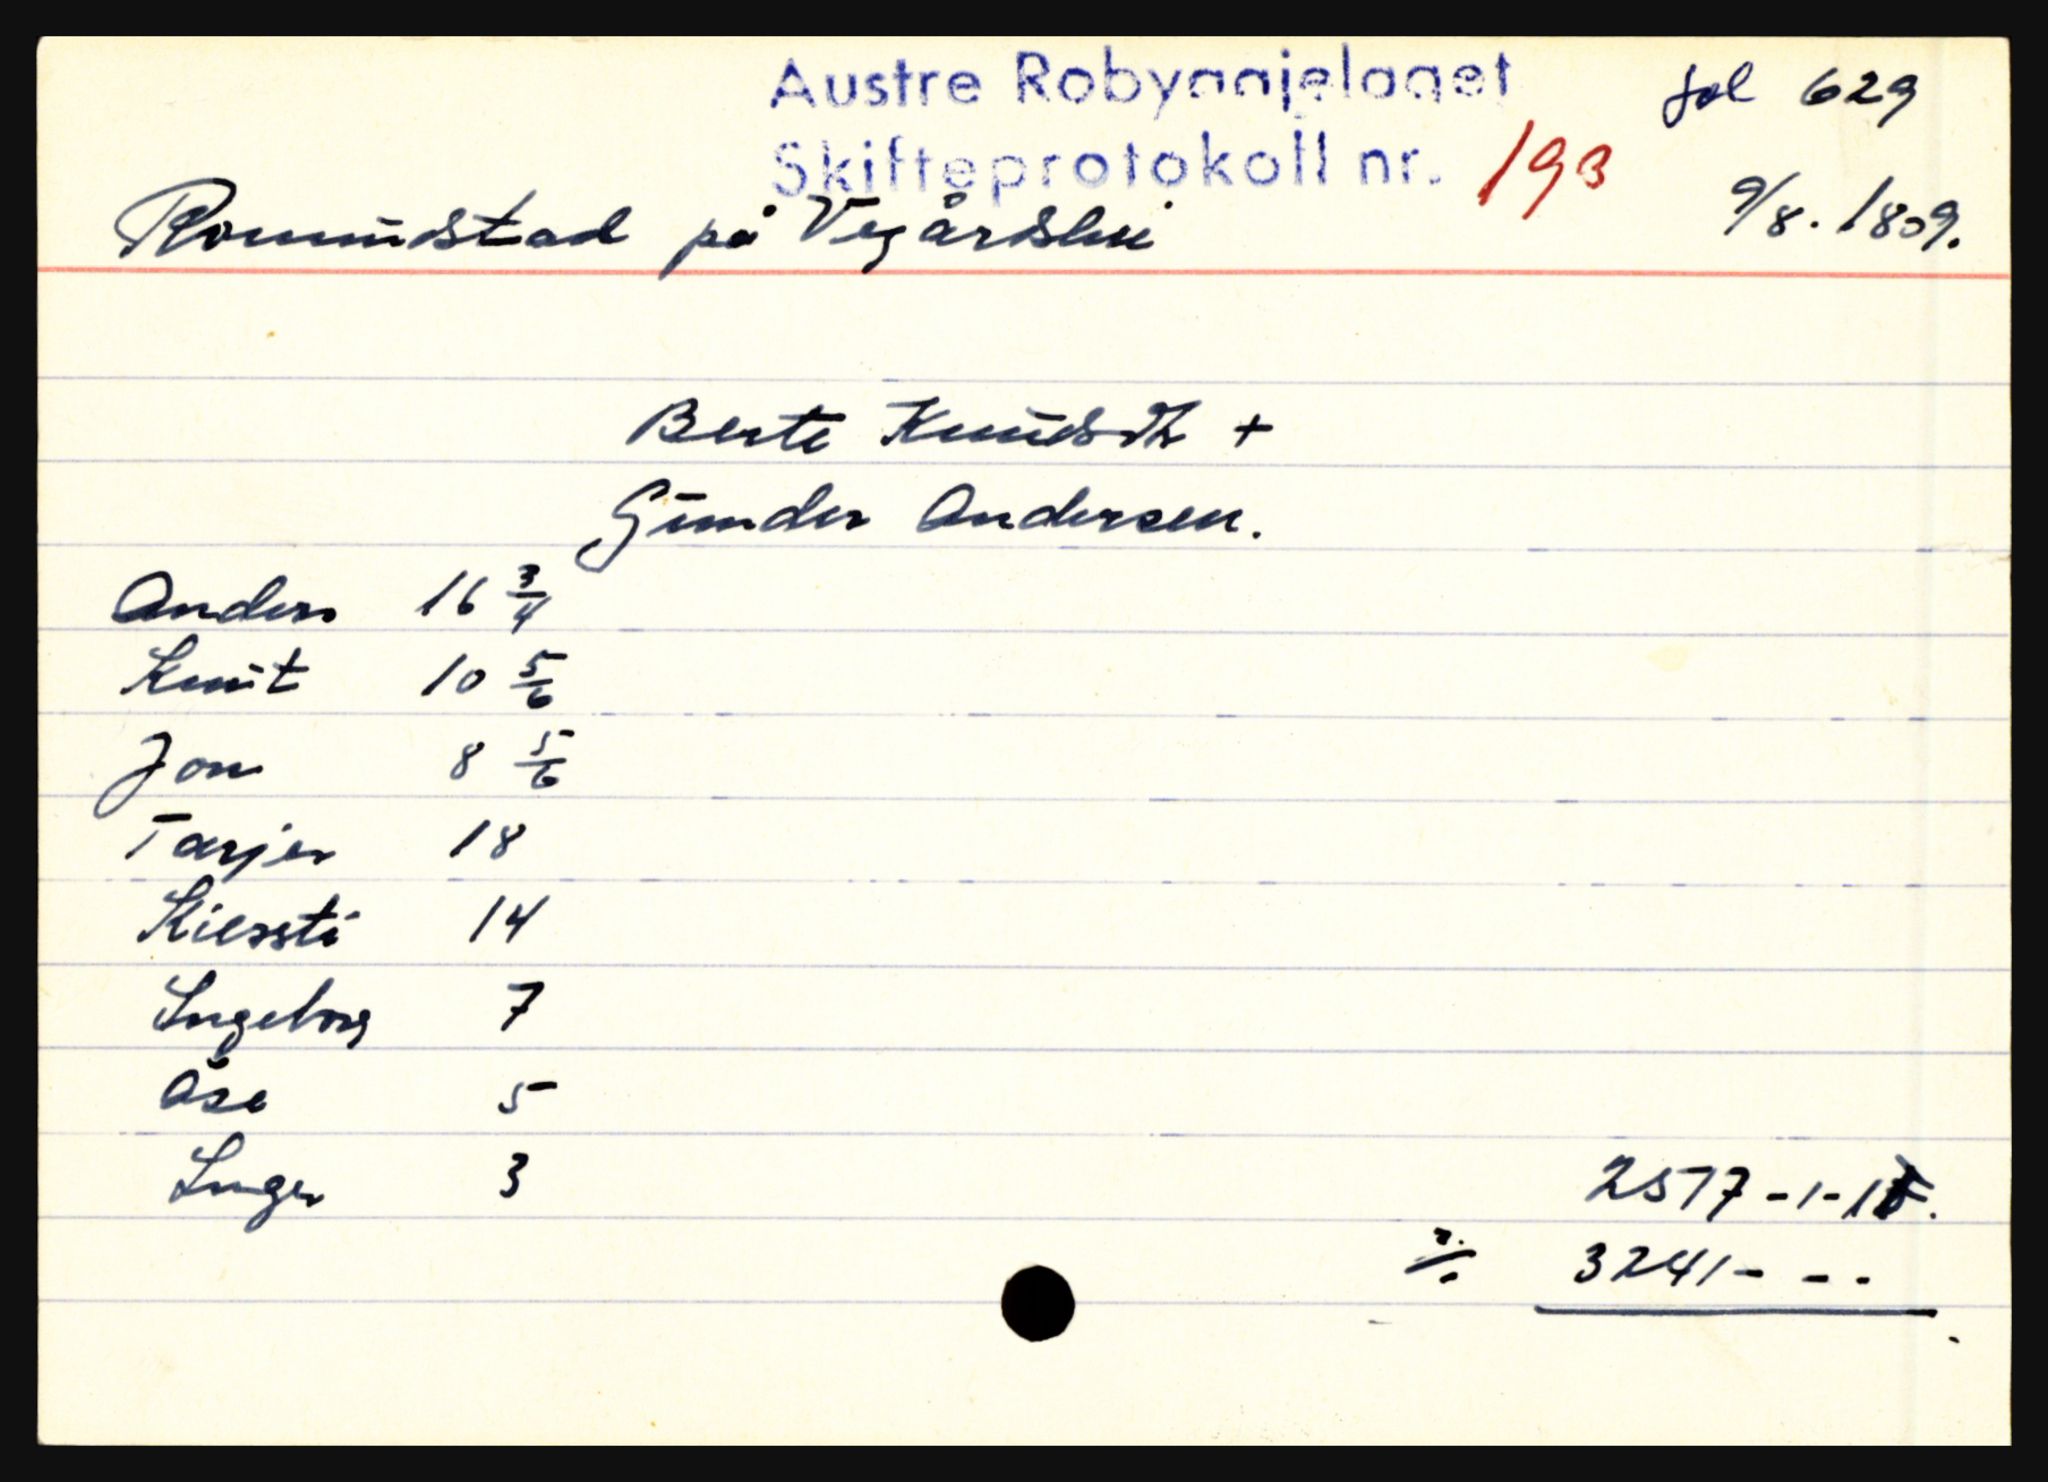 Austre Robyggjelaget
fol 629
Skifteprotokoll nr. 193
9/8. 1809.
Romundstad på Vegårdshei
Berte Knudsdtr +
Gunder Andersen.
Anders 16 3/4
Knut 10 5/6
Jon 8 5/6
Tarjer 18
Kiersti 14
Ingeborg 7
Åse 5
Inger 3
2577-1-
÷ 3241- - -